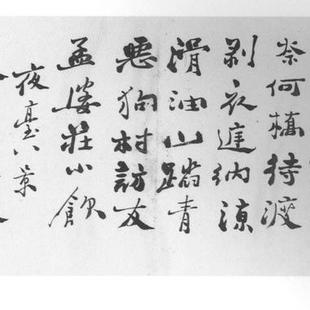 奈何橋待渡
剥衣廷納涼
滑油山踏青
惡狗村訪友
孟婆莊小飲
夜臺八景